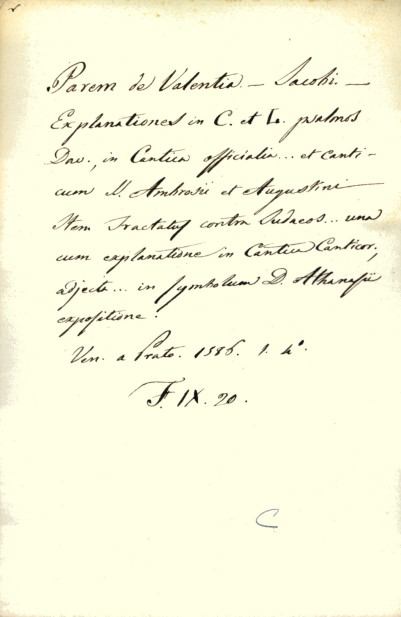 Parem de Valentia – Jacobi. –
Explanationes in C. et L. psalmos
Dav., in Cantica officialia... et canti-
cum St. Ambrosii et Augustini
Item Tractatus contra Judaeos... una
cum explanatione in Cantica Canticor.,
adjecta... in symbolum D. Athanasii
expositione.
Ven. a Prato. 1586. 1. 4°.
F. IX. 20.
C